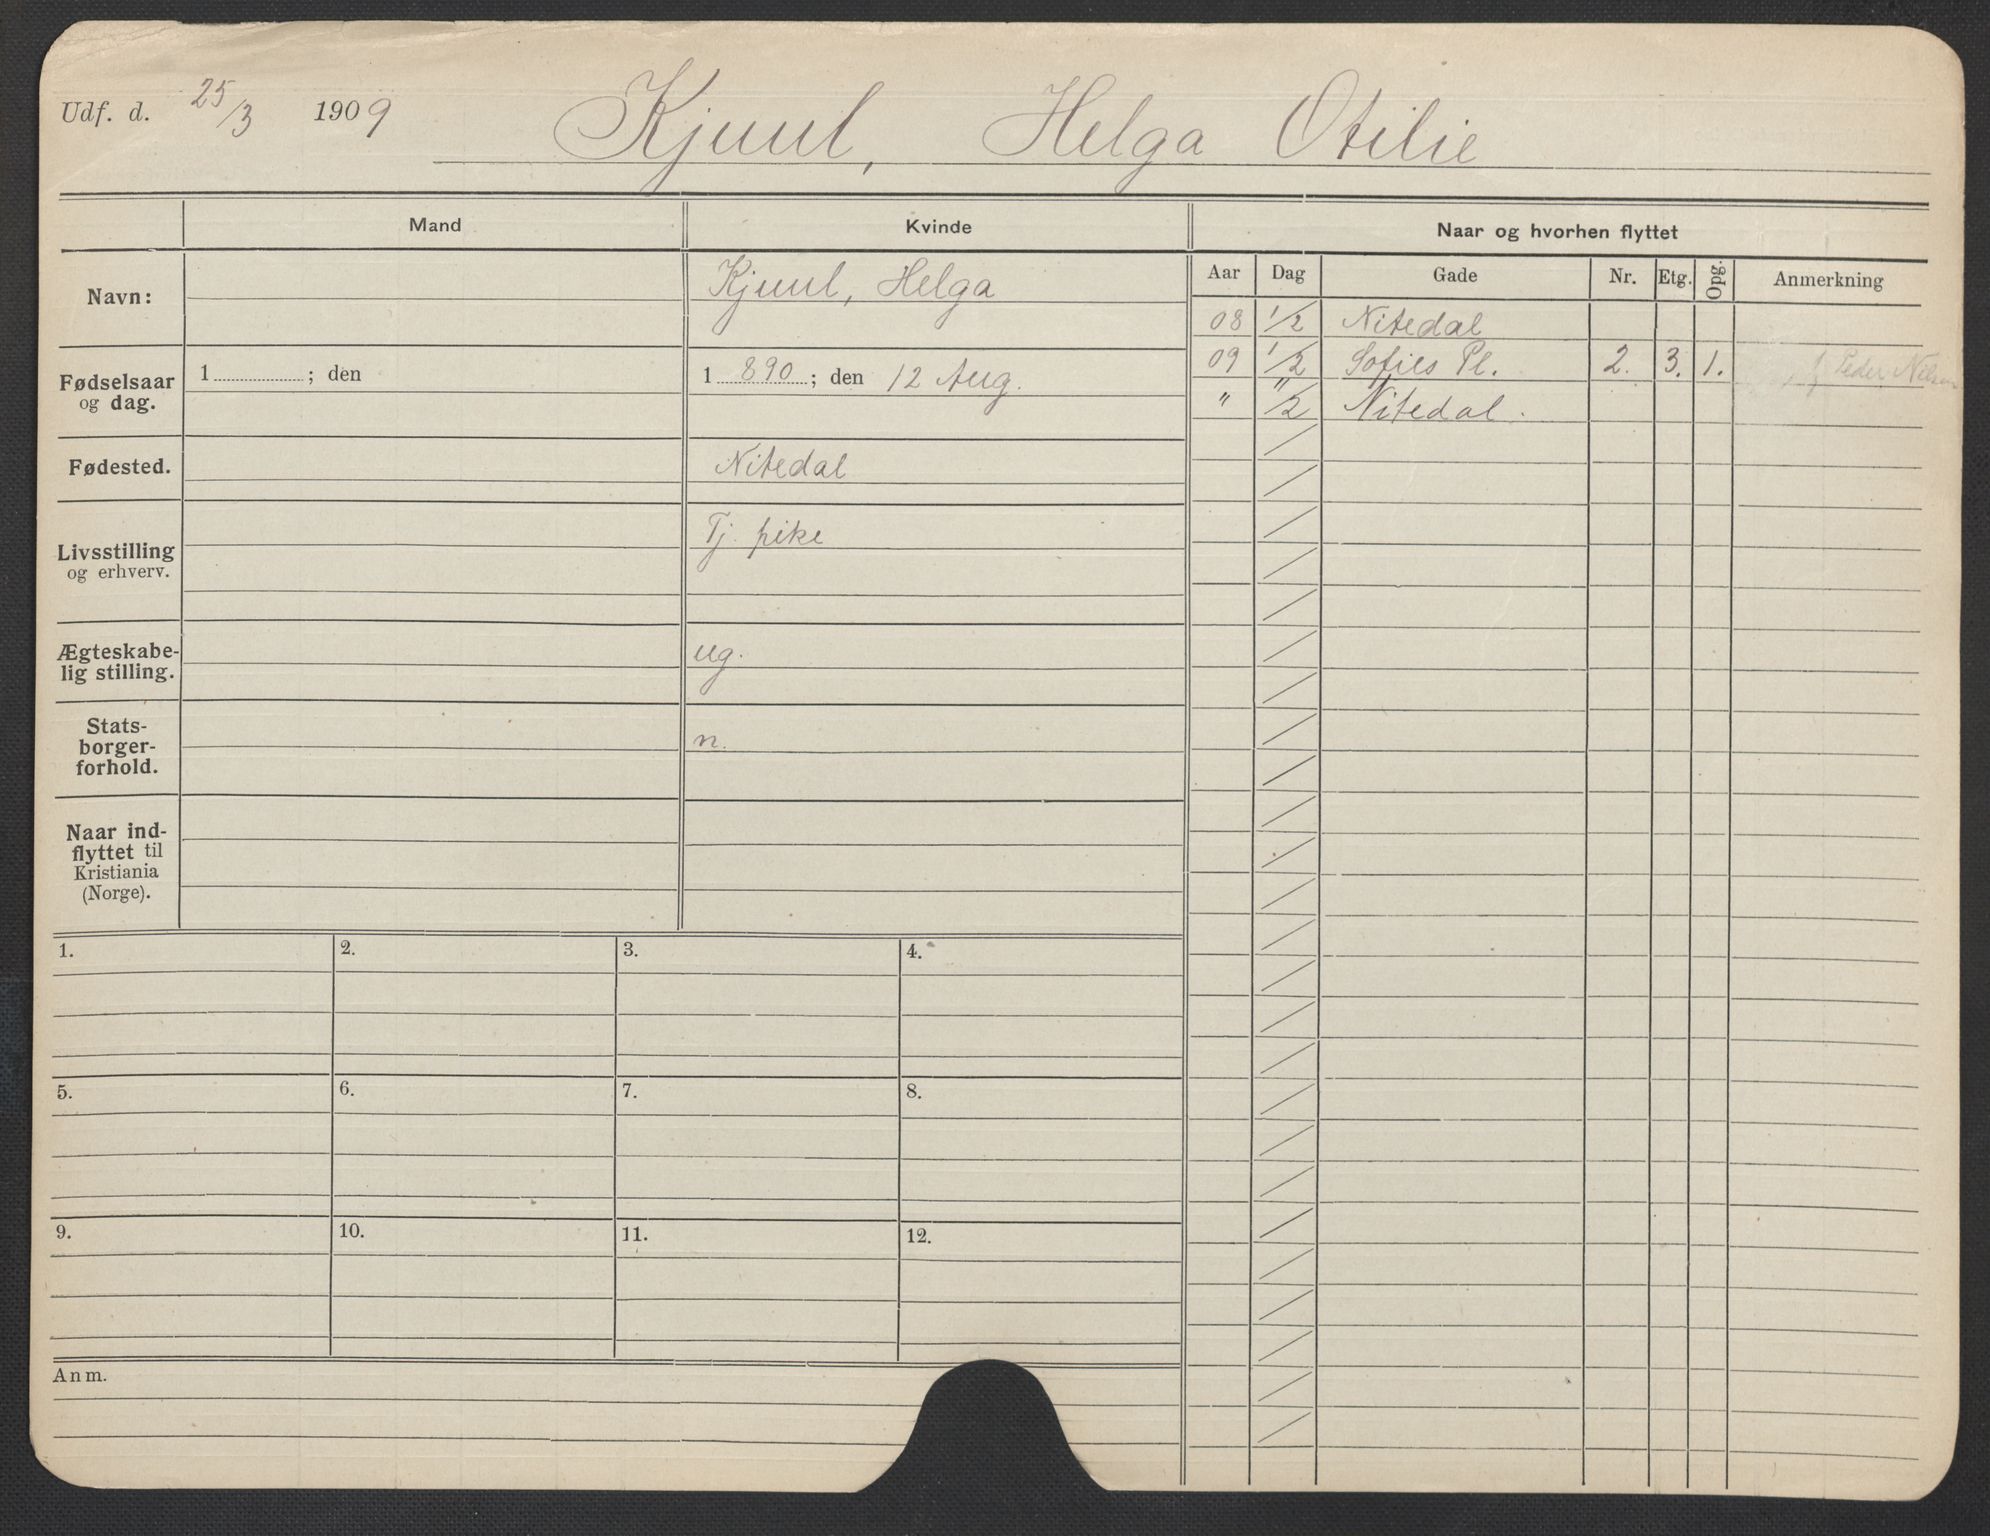 Udf. d. 25/3 1909 Kjuul, Helga Otilie
Mand Kvinde Naar og hvorhen flyttet
Aar Dag Gade Nr. Etg. Opg. Anmerkning
Navn: Kjuul, Helga
08 1/2 Nitedal
09 1/2 Sofies Pl. 2. 3. 1. Peder Nilsen
" "/2 Nitedal.
Fødselsaar og dag. 1 ; den 1890 ; den 12 Aug.
Fødested. Nitedal
Livsstilling og erhverv. Tj. pike
Ægteskabe-
lig stilling. ug.
Stats-
borger-
forhold. n.
Naar ind-
flyttet til
Kristiania
(Norge).
1. 2. 3. 4.
5. 6. 7. 8.
9. 10. 11. 12.
Anm.